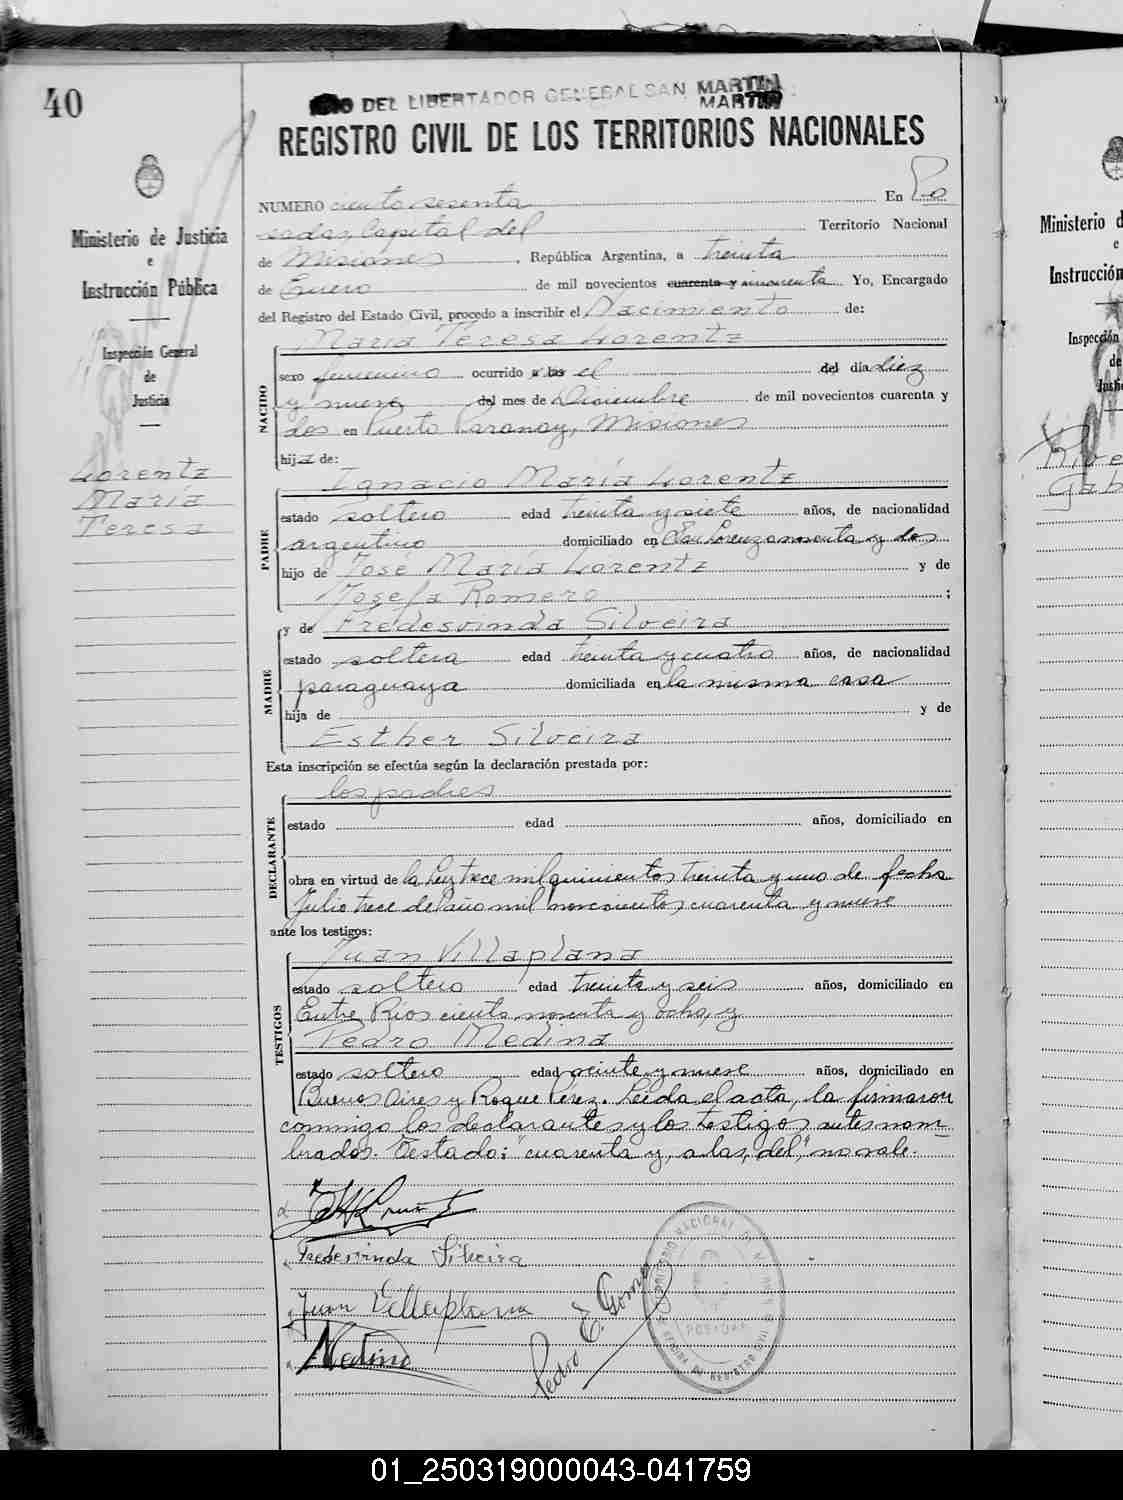 40
AÑO DEL LIBERTADOR GENERAL SAN MARTIN
MARTIN
REGISTRO CIVIL DE LOS TERRITORIOS NACIONALES
Ministerio de Justicia
e
Instrucción Pública
Inspección General
de
Justicia
Lorentz
María
Teresa
NUMERO ciento sesenta En Po
sadas, Capital del Territorio Nacional
de Misiones, República Argentina, a treinta
de Enero de mil novecientos cuarenta y cincuenta Yo, Encargado
del Registro del Estado Civil, procedo a inscribir el Nacimiento de:
María Teresa Lorentz
NACIDO
sexo femenino ocurrido a las el del día diez
y nueve del mes de Diciembre de mil novecientos cuarenta y
dos en Puerto Paranay, Misiones
hija de:
Ignacio María Lorentz
PADRE
estado soltero edad treinta y siete años, de nacionalidad
argentino domiciliado en San Lorenzo noventa y dos
hijo de José María Lorentz y de
Josefa Romero ;
y de Fredesvinda Silveira
MADRE
estado soltera edad treinta y cuatro años, de nacionalidad
paraguaya domiciliada en la misma casa
hija de y de
Esther Silveira
Esta inscripción se efectúa según la declaración prestada por:
los padres
DECLARANTE
estado edad años, domiciliado en
obra en virtud de la Ley trece mil quinientos treinta y uno de fecha
Julio trece del año mil novecientos cuarenta y nueve
ante los testigos:
Juan Villaplana
TESTIGOS
estado soltero edad treinta y seis años, domiciliado en
Entre Rios ciento noventa y ocho, y
Pedro Medina
estado soltero edad veinte y nueve años, domiciliado en
Buenos Aires y Roque Perez. Leida el acta, la firmaron
conmigo los declarantes y los testigos antes nom-
brados. Testado: "cuarenta y, a las, del", no vale.
Fredesvinda Silveira
Juan Villaplana
Medina
Pedro E. Gomez
POSADAS
Ministerio d
e
Instrucción
Inspección
de
Justi
Rive
Gab
01_250319000043-041759